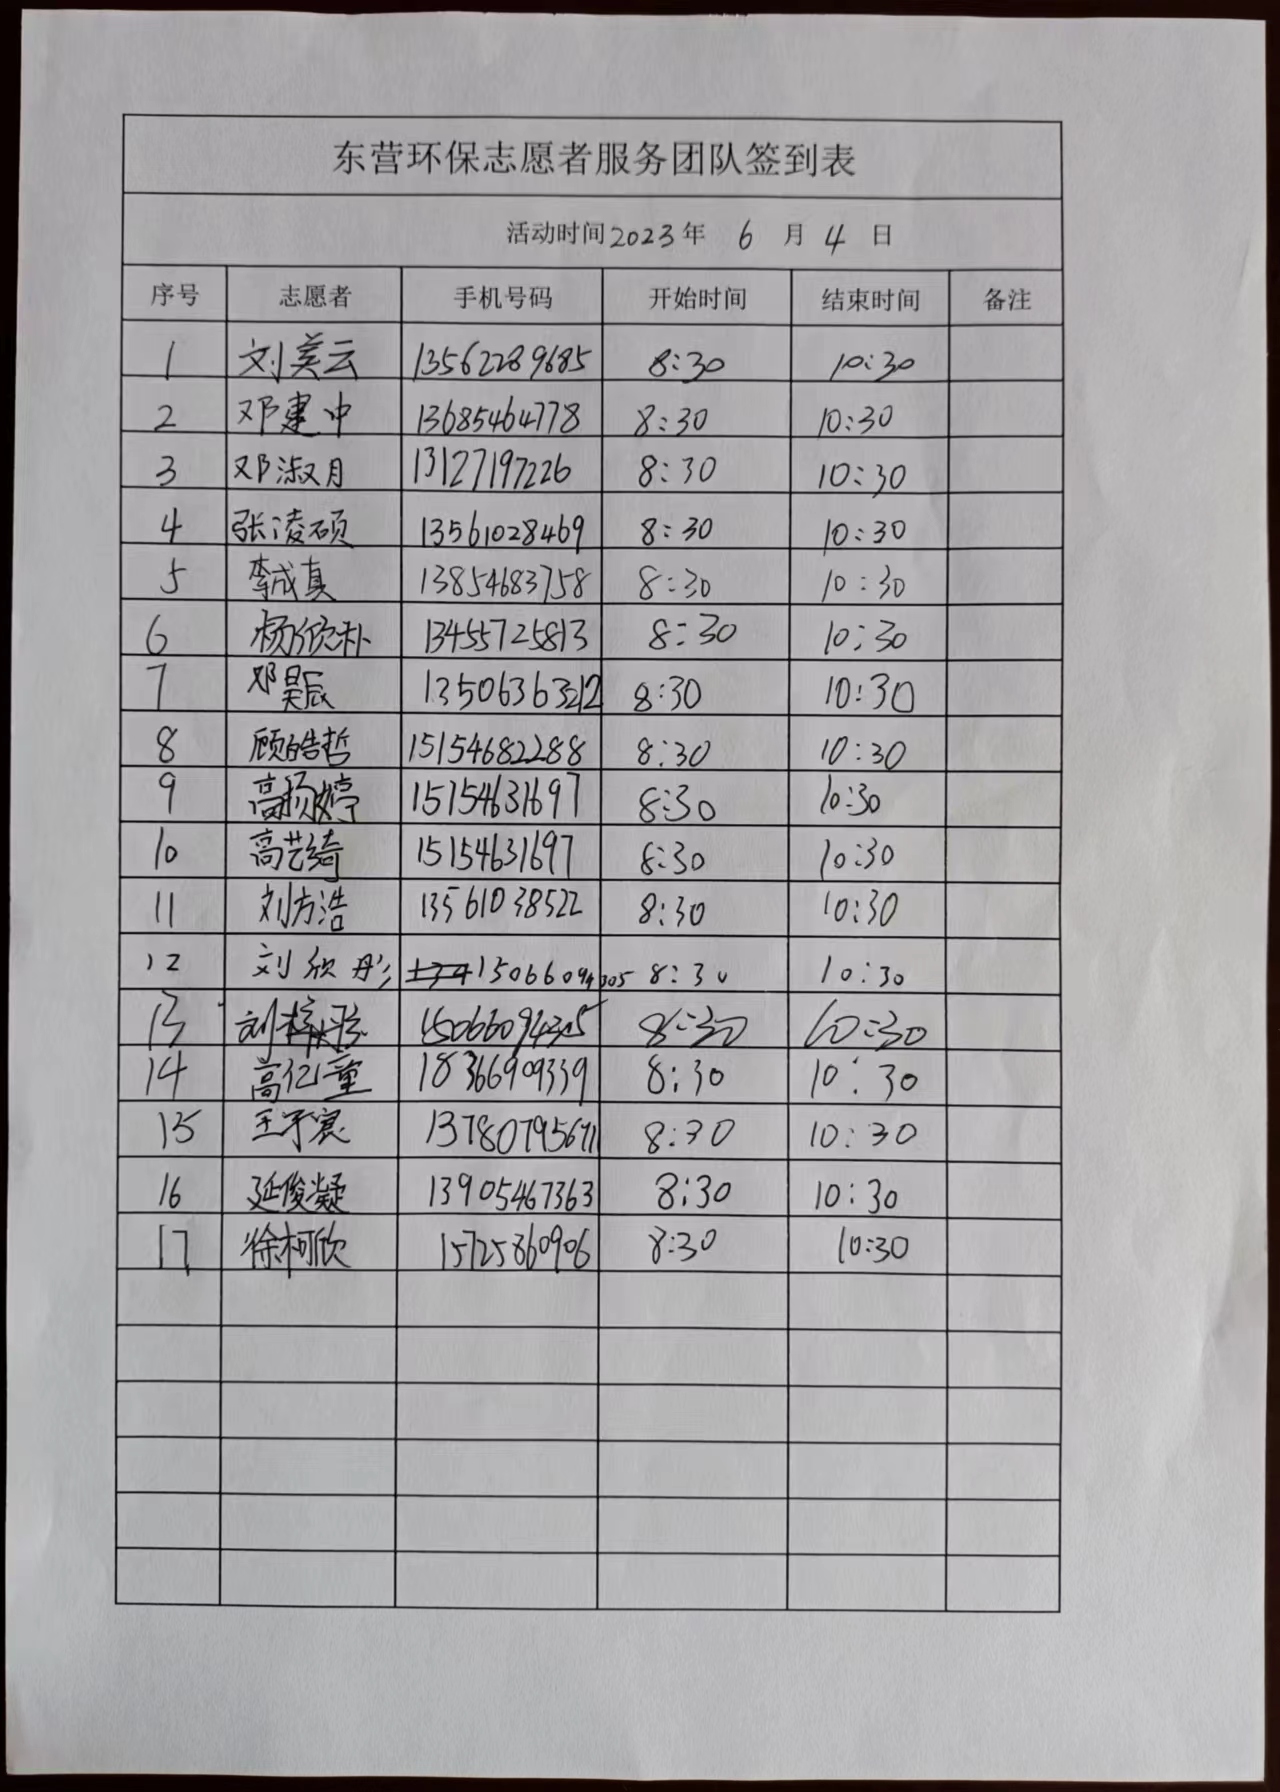 东营环保志愿者服务团队签到表
活动时间2023年 6 月 4 日
序号 志愿者 手机号码 开始时间 结束时间 备注
1 刘美云 13562289685 8:30 10:30
2 邓建中 13685464778 8:30 10:30
3 邓淑月 13127197226 8:30 10:30
4 张凌硕 13561028469 8:30 10:30
5 李成真 13854683758 8:30 10:30
6 杨欣朴 13455725813 8:30 10:30
7 邓昊辰 13506363212 8:30 10:30
8 顾皓哲 15154682288 8:30 10:30
9 高杨婷 15154631697 8:30 10:30
10 高艺绮 15154631697 8:30 10:30
11 刘方浩 13561038522 8:30 10:30
12 刘欣彤 15066094305 8:30 10:30
13 刘梓 15066094305 8:30 10:30
14 高亿童 18366909339 8:30 10:30
15 王子宸 13780795671 8:30 10:30
16 延俊凝 13905467363 8:30 10:30
17 徐柯欣 15725860906 8:30 10:30